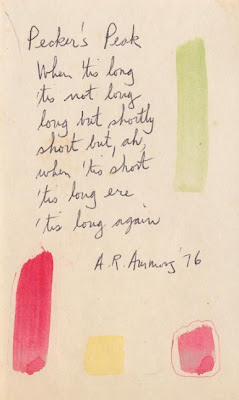 Pecker's Peak
When 'tis long
'tis not long
long but shortly
short but, ah,
when 'tis short
'tis long ere
'tis long again
A.R. Ammons '76